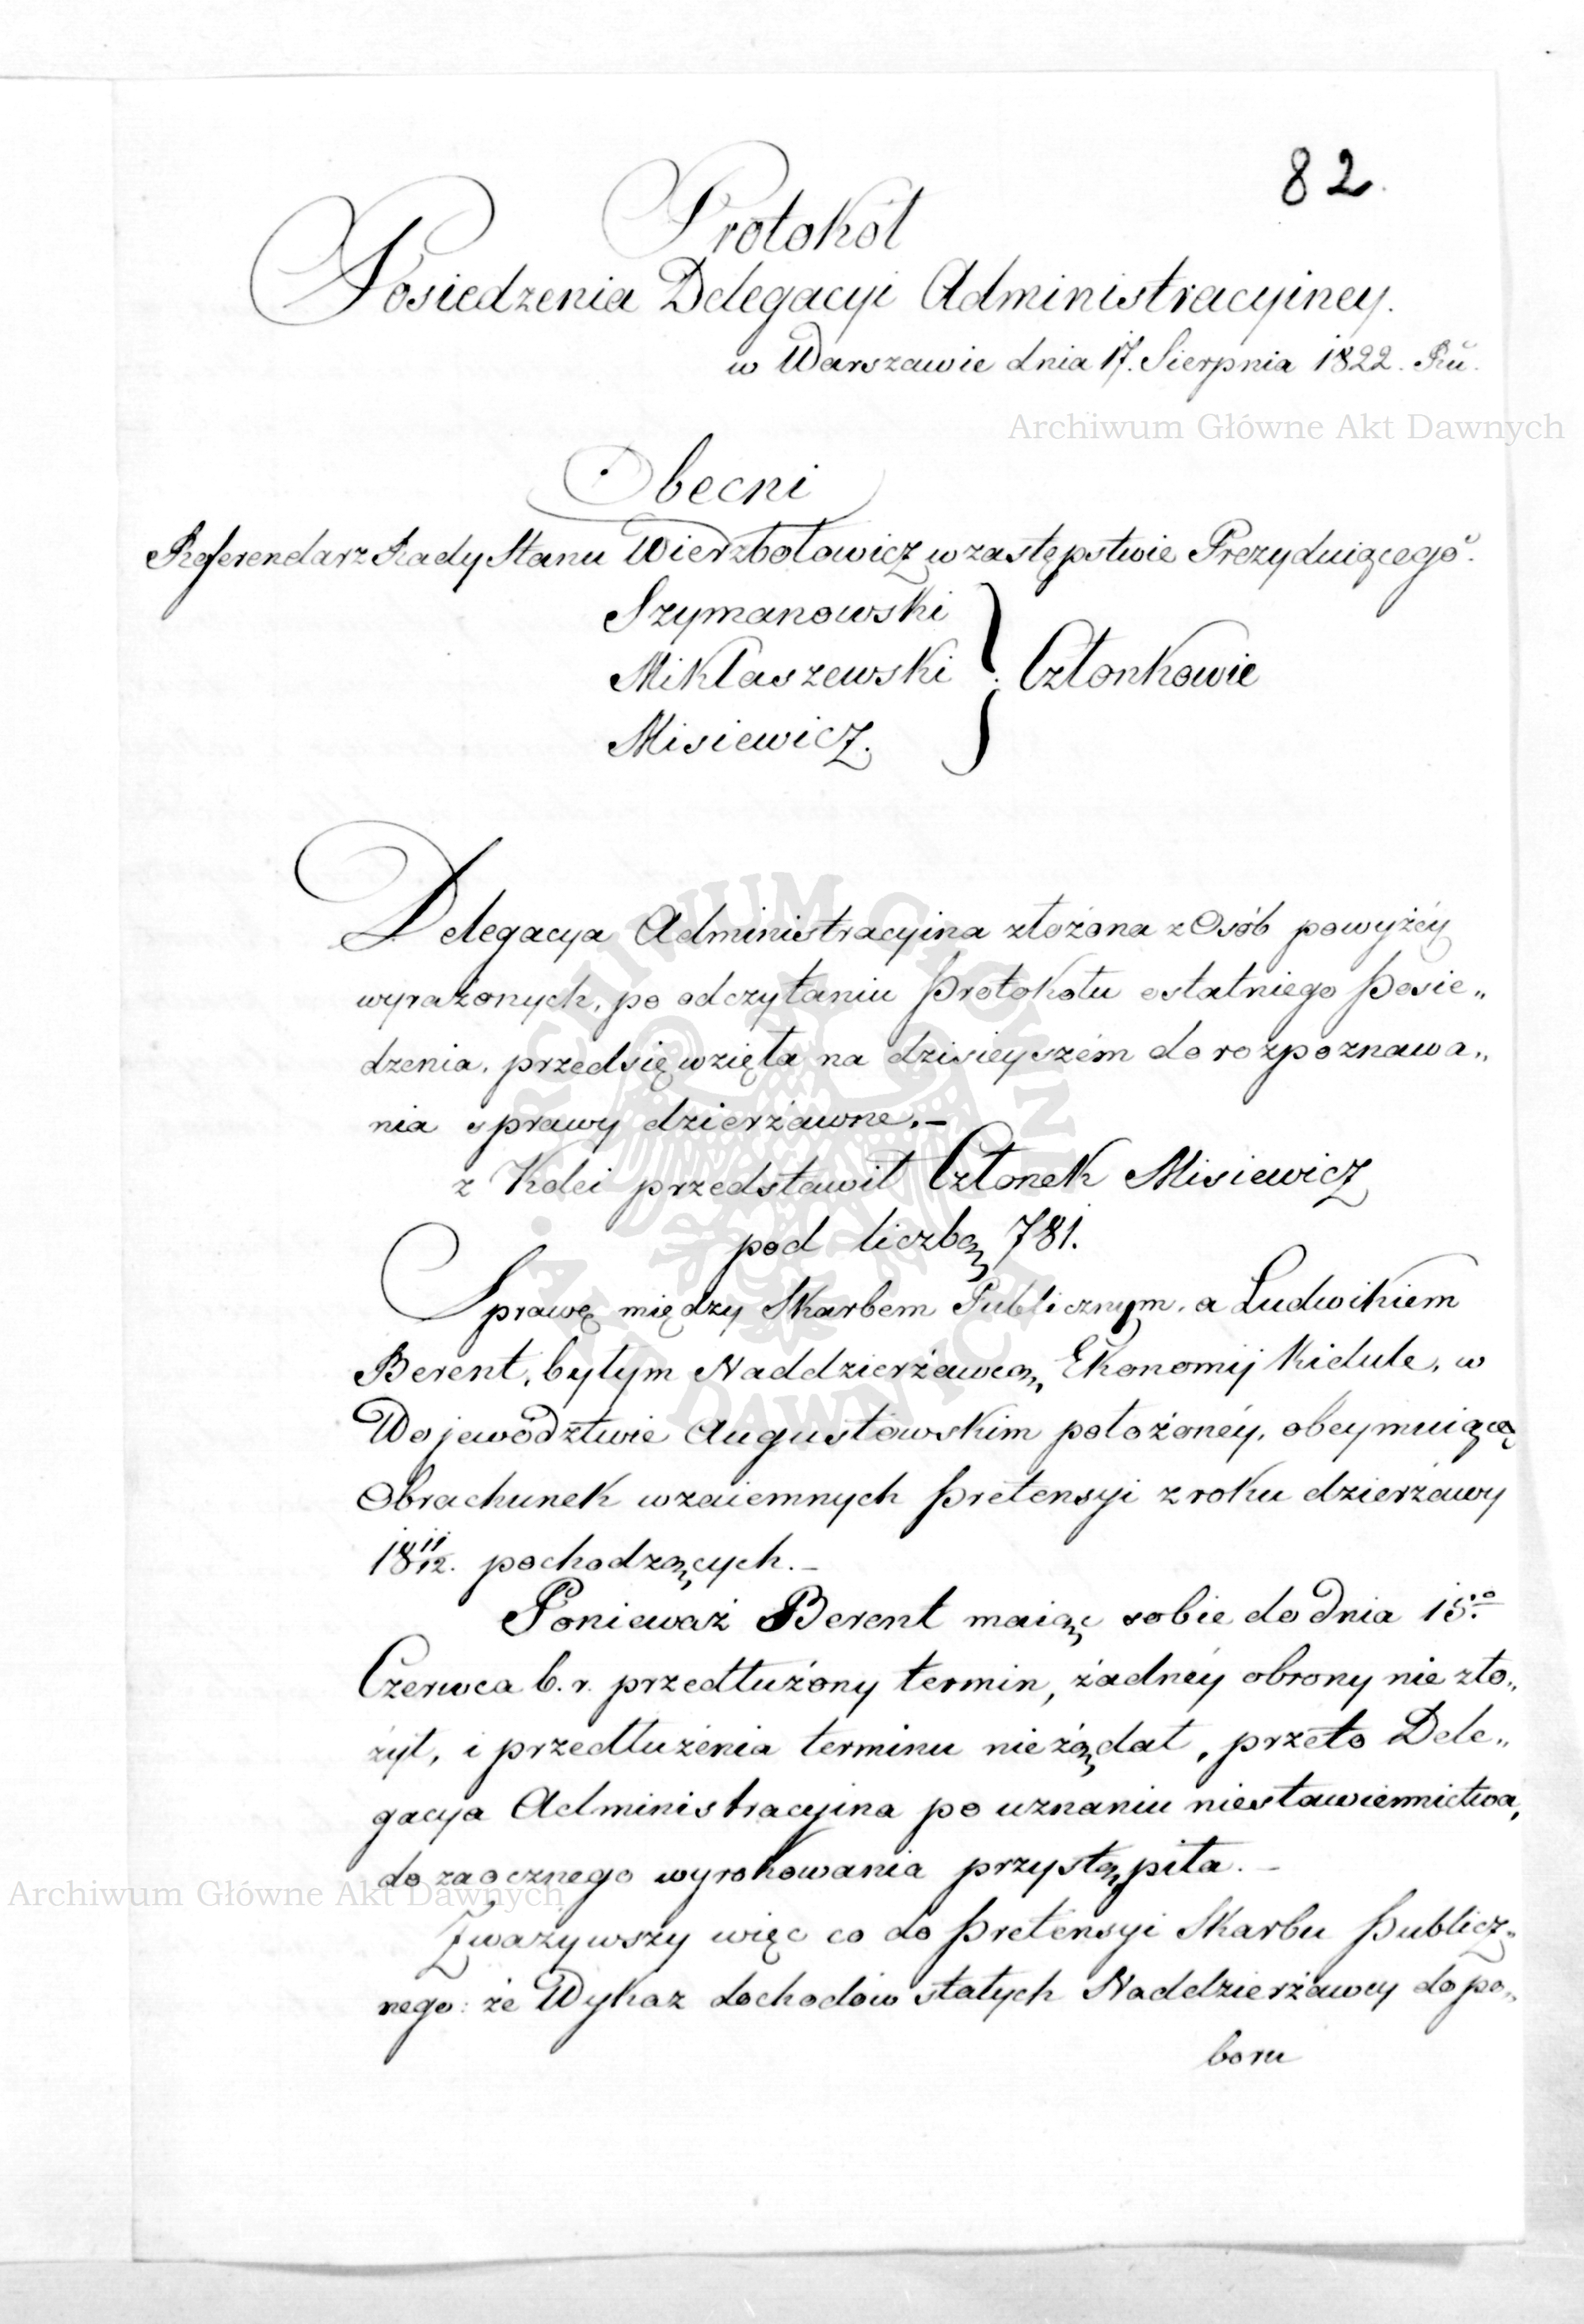 82.
Protokół
Posiedzenia Delegacyi Administracyiney.
w Warszawie dnia 17. Sierpnia 1822. Ru.
Archiwum Główne Akt Dawnych
Obecni
Referendarz Rady Stanu Wierzbołowicz w zastępstwie Prezyduiącego.
Szymanowski
Mikłaszewski } Członkowie
Misiewicz.
Delegacya Administracyina złożona z Osób powyżéy
wyrażonych, po odczytaniu Protokołu ostatniego Posie„
dzenia, przedsięwzięła na dzisieyszém do rozpoznawa„
nia sprawy dzierżawne.–
z Kolei przedstawił Członek Misiewicz
pod liczbą 781.
Sprawę między Skarbem Publicznym, a Ludwikiem
Berent, byłym Naddzierżawcą, Ekonomij Kidule, w
Województwie Augustowskim położonéy, obeymuiącą
Obrachunek wzaiemnych Pretensyi z roku dzierżawy
18 11/12. pochodzących.–
Ponieważ Berent maiąc sobie do dnia 15.º
Czerwca b. r. przedłużony termin, żadnéy obrony nie zło„
żył, i przedłużenia terminu nieżądał, przeto Dele„
gacya Administracyina po uznaniu niestawiennictwa,
do zaocznego wyrokowania przystąpiła.–
Archiwum Główne Akt Dawnych
Zważywszy więc co do Pretensyi Skarbu Publicz„
nego: że Wykaz dochodów stałych Naddzierżawcy do po„
boru
ARCHIWUM GŁÓWNE AKT DAWNYCH